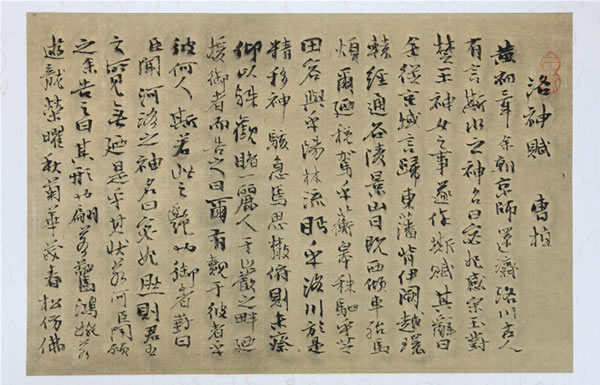 洛神賦 曹植
黃初三年余朝京師還濟洛川古人
有言斯水之神名曰宓妃感宋玉對
楚王神女之事遂作斯賦其辭曰
余從京域言歸東藩背伊闕越轘
轅經通谷陵景山日既西傾車殆馬
煩爾迺稅駕乎蘅皋秣駟乎芝
田容與乎陽林流眄乎洛川於是
精移神駭忽焉思散俯則未察
仰以殊觀睹一麗人于巖之畔迺
援御者而告之曰爾有覿于彼者乎
彼何人斯若此之艷也御者對曰
臣聞河洛之神名曰宓妃然則君王
之所見無迺是乎其狀若何臣聞願
之余告之曰其形也翩若驚鴻婉若
遊龍榮曜秋菊華茂春松仿佛